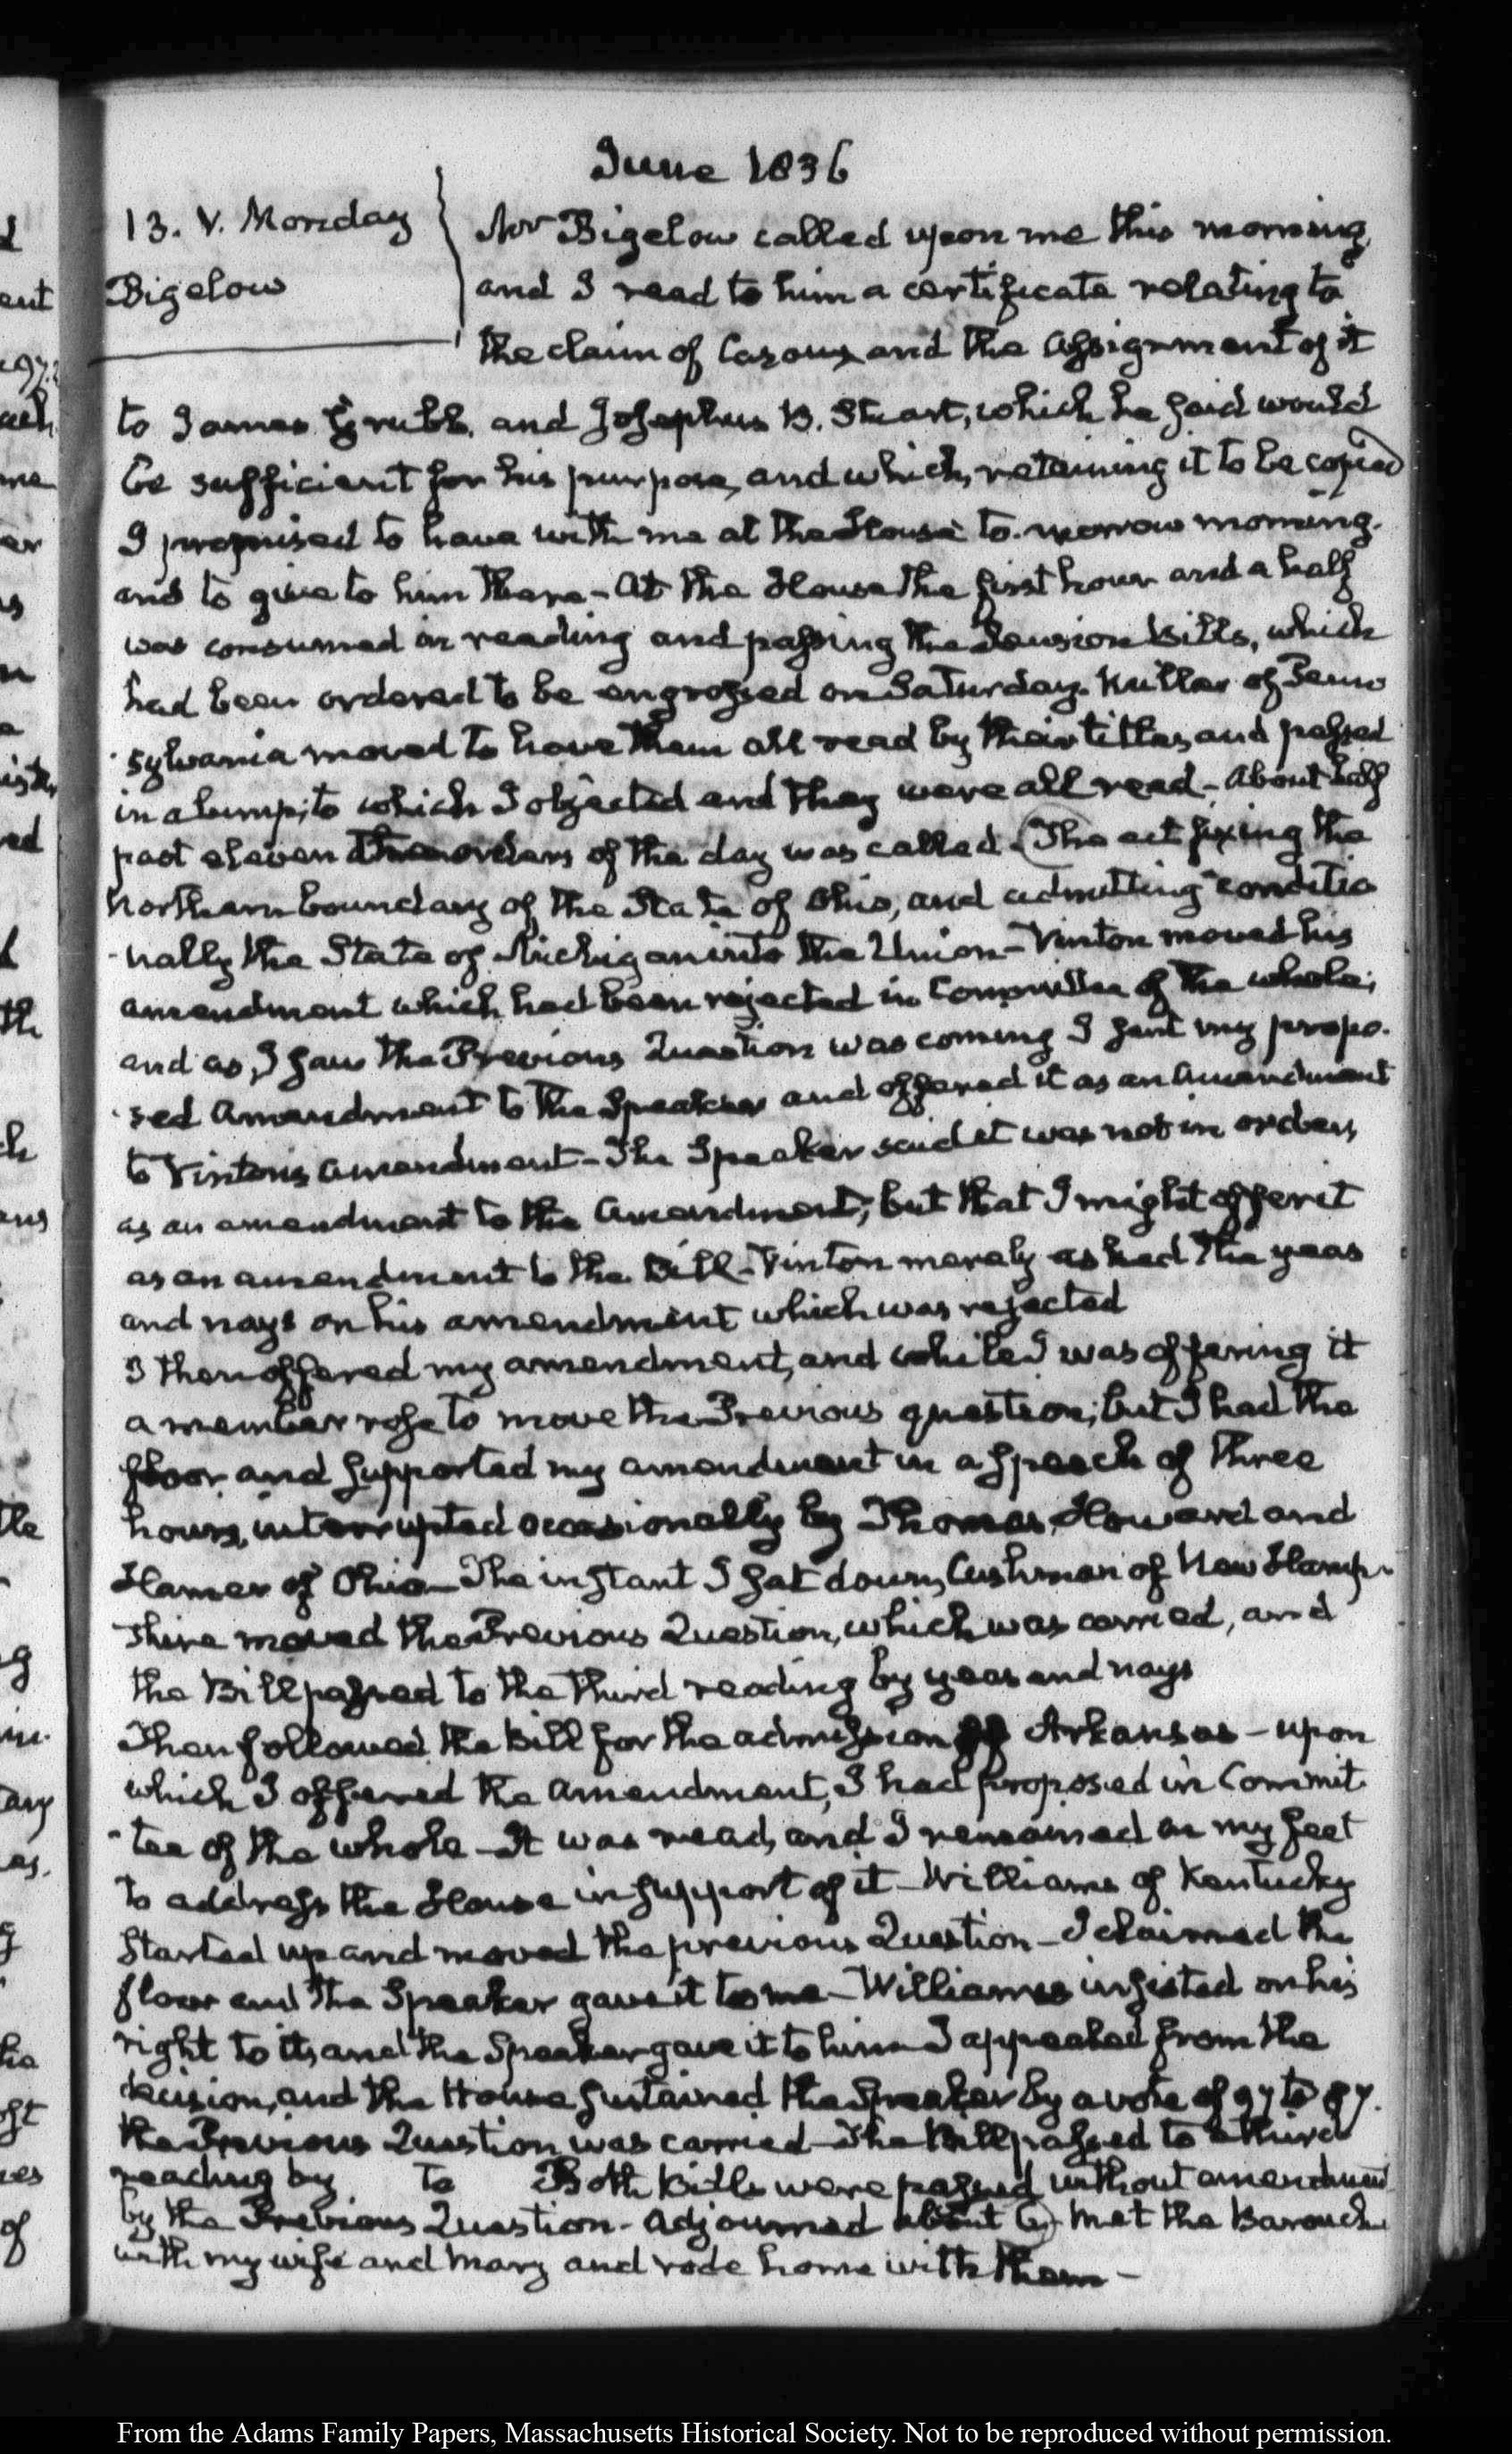 June 1836
13. V. Monday
Bigelow
Mr Bigelow called upon me this morning,
and I read to him a certificate relating to
the claim of and the assignment of it
to James Grubb, and Josephus B. Stuart, which he said would
be sufficient for his purpose, and which, retaining it to be copied
I promised to have with me at the House to-morrow morning.
and to give to him there – At the House the first hour and a half
was consumed in reading and passing the Pension Bills, which
had been ordered to be engrossed on Saturday. of Penn-
-sylvania moved to have them all read by their titles, and passed
in a lump; to which I objected and they were all read – About half
past eleven the orders of the day was called. The act fixing the
Northern boundary of the State of Ohio, and admitting conditio
-nally the State of Michigan into the Union – Vinton moved his
amendment which had been rejected in Committee of the whole;
and as, I saw the Previous Question was coming I sent my propo-
-sed Amendment to the Speaker and offered it as an Amendment
to Vinton's amendment – The Speaker said it was not in order,
as an amendment to the Amendment; but that I might offer it
as an amendment to the Bill – Vinton merely asked the yeas
and nays on his amendment which was rejected
I then offered my amendment, and while I was offering it
a member rose to move the Previous question; but I had the
floor and supported my amendment in a speech of three
hours, interrupted occasionally by Thomas, Howard and
Hamer of Ohio – The instant I sat down, Cushman of New Hamp-
shire moved the Previous Question, which was carried, and
the Bill passed to the third reading by yeas and nays
Then followed the Bill for the admission of Arkansas – upon
which I offered the amendment, I had proposed in Commit-
-tee of the whole – It was read, and I remained on my feet
to address the House in support of it – Williams of Kentucky
started up and moved the previous Question – I claimed the
floor and the Speaker gave it to me – Williams insisted on his
right to it, and the Speaker gave it to him – I appealed from the
decision, and the House sustained the Speaker by a vote of 97 to 87.
the Previous Question was carried – The Bill passed to a third
reading by to Both Bills were passed without amendment
by the Previous Question – Adjourned about 6 – met the Barouche
with my wife and Mary and rode home with them –
From the Adams Family Papers, Massachusetts Historical Society. Not to be reproduced without permission.